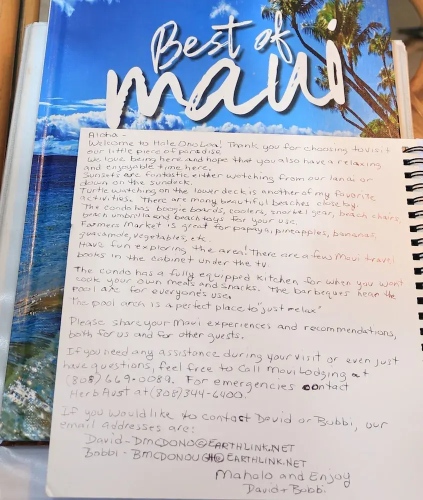 Best of
maui
Aloha -
Welcome to Hale Ono Loa! Thank you for choosing to visit
our little piece of paradise
We love being here and hope that you also have a relaxing
and enjoyable time here.
Sunsets are fantastic either watching from our lanai or
down on the sundeck.
Turtle watching on the lower deck is another of my favorite
activities. There are many beautiful beaches close by
The condo has boogie boards, coolers, snorkel gear, beach chairs
beach umbrella and beach toys for your use.
Farmers Market is great for papaya, pineapples, bananas,
guacamole, vegetables, etc
Have fun exploring the area! There are a few Maui travel
books in the cabinet under the tv.
The condo has a fully equipped kitchen for when you want
cook your own meals and snacks. The barbeques near the
pool are for everyone's use.
The pool area is a perfect place to "just relax"
Please share your Maui experiences and recommendations,
both for us and for other guests.
If you need any assistance during your visit or even just
have questions, feel free to call Maui Lodging at
(808) 669-0089. For emergencies contact
Herb Aust at (808) 344-6400.
If you would like to contact David or Bubbi, our
email addresses are:
David - DMCDONO@EARTHLINK.NET
Bobbi - BMCDONOUGH@EARTHLINK.NET
Mahalo and Enjoy
David + Bubbi